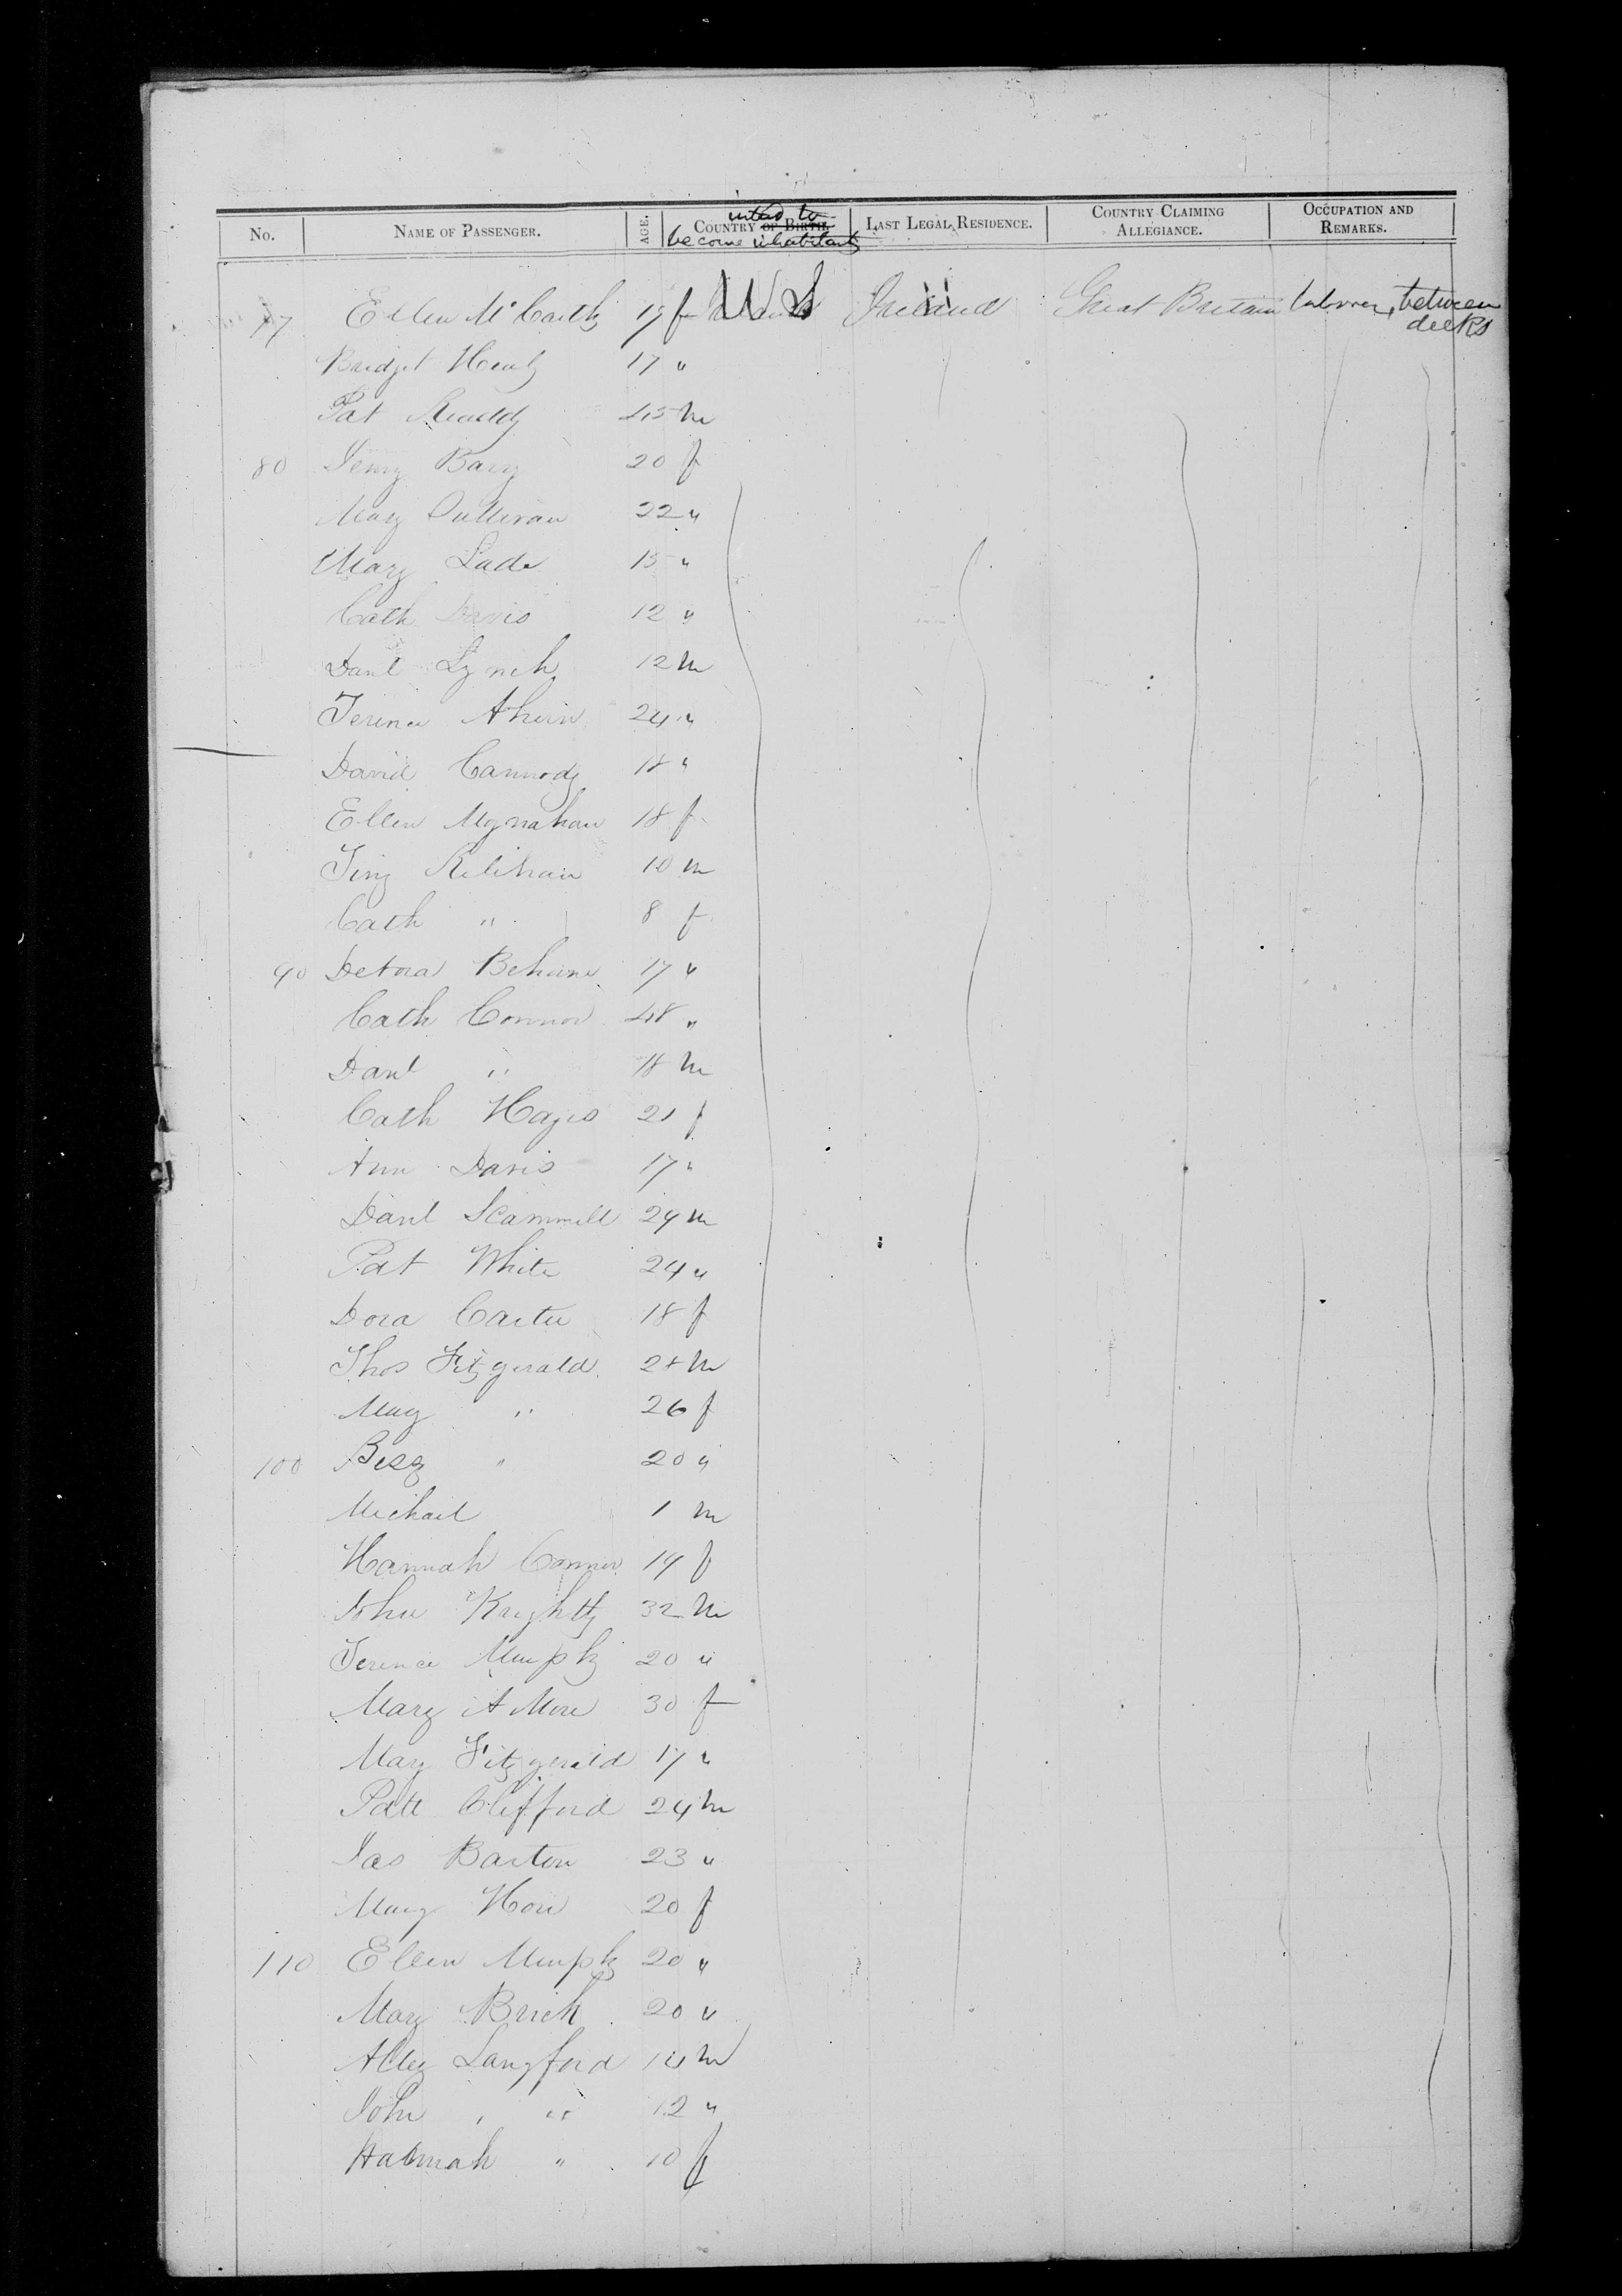 No. NAME OF PASSENGER. AGE. COUNTRY OF BIRTH. intend to become inhabitants LAST LEGAL RESIDENCE. COUNTRY CLAIMING ALLEGIANCE. OCCUPATION AND REMARKS.
77 Ellen McCarthy 19 f U S Ireland Great Britain laborer, between decks
Bridget 17 "
Pat 45 m
80 Barry 20 f
Mary Sullivan 22 "
Mary Lade 15 "
Cath Davis 12 "
Danl Lynch 12 m
Terence Ahern 24 "
David 18 "
Ellen Moynahan 18 f
Relihan 10 m
Cath " 8 f
90 Debora 17 "
Cath Connor 48 "
Danl " 18 m
Cath Hayes 21 f
Ann Davis 17 "
Danl Scammell 29 m
Pat White 24 "
Dora Carter 18 f
Thos Fitzgerald 28 m
Mary " 26 f
100 " 20 "
Michael 1 m
Hannah Connor 19 f
John 32 m
Terence Murphy 20 "
Mary A More 30 f
Mary Fitzgerald 17 "
Patt Clifford 24 m
Jas Barton 23 "
Mary 20 f
110 Ellen Murphy 20 "
Mary Brick 20 "
Langford 14 m
John " 12 "
Hannah " 10 f